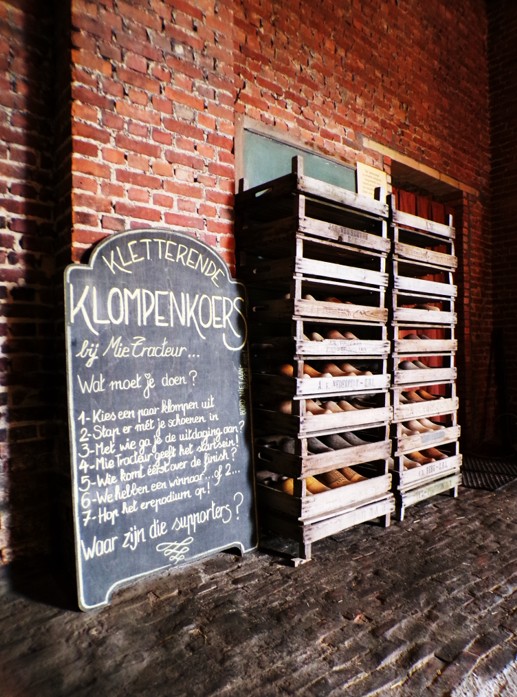 KLETTERENDE
KLOMPENKOERS
bij MieTracteur...
Wat moet je doen?
1-Kies een paar klompen uit
2-Stap er mét je schoenen in
3-Met wie ga je de uitdaging aan?
4-Mie Tracteur geeft het startsein!
5-Wie komt éérst over de finish?
6-We hebben een winnaar...of 2...
7-Hop het erepodium op!
Waar zijn die supporters?